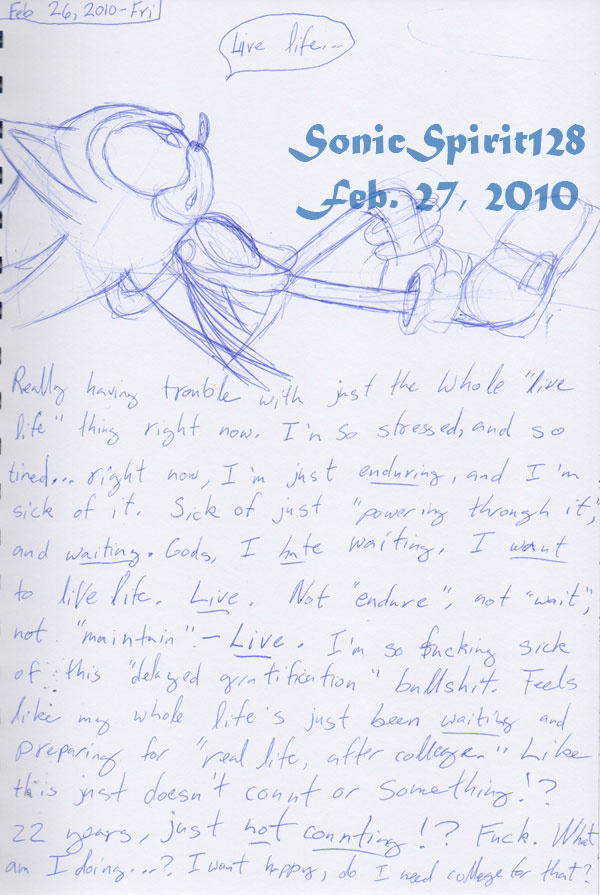 Feb 26, 2010-Fri
Live life...
SonicSpirit128
Feb. 27, 2010
Really having trouble with just the whole "live
life" thing right now. I'm so stressed, and so
tired... right now, I'm just enduring, and I'm
sick of it. Sick of just "powering through it",
and waiting. Gods, I hate waiting. I want
to live life. Live. Not "endure", not "wait",
not "maintain" - Live. I'm so fucking sick
of this "delayed gratification" bullshit. Feels
like my whole life's just been waiting and
preparing for "real life, after college." Like
this just doesn't count or something!?
22 years, just not counting!? Fuck. What
am I doing...? I want happy, do I need college for that?